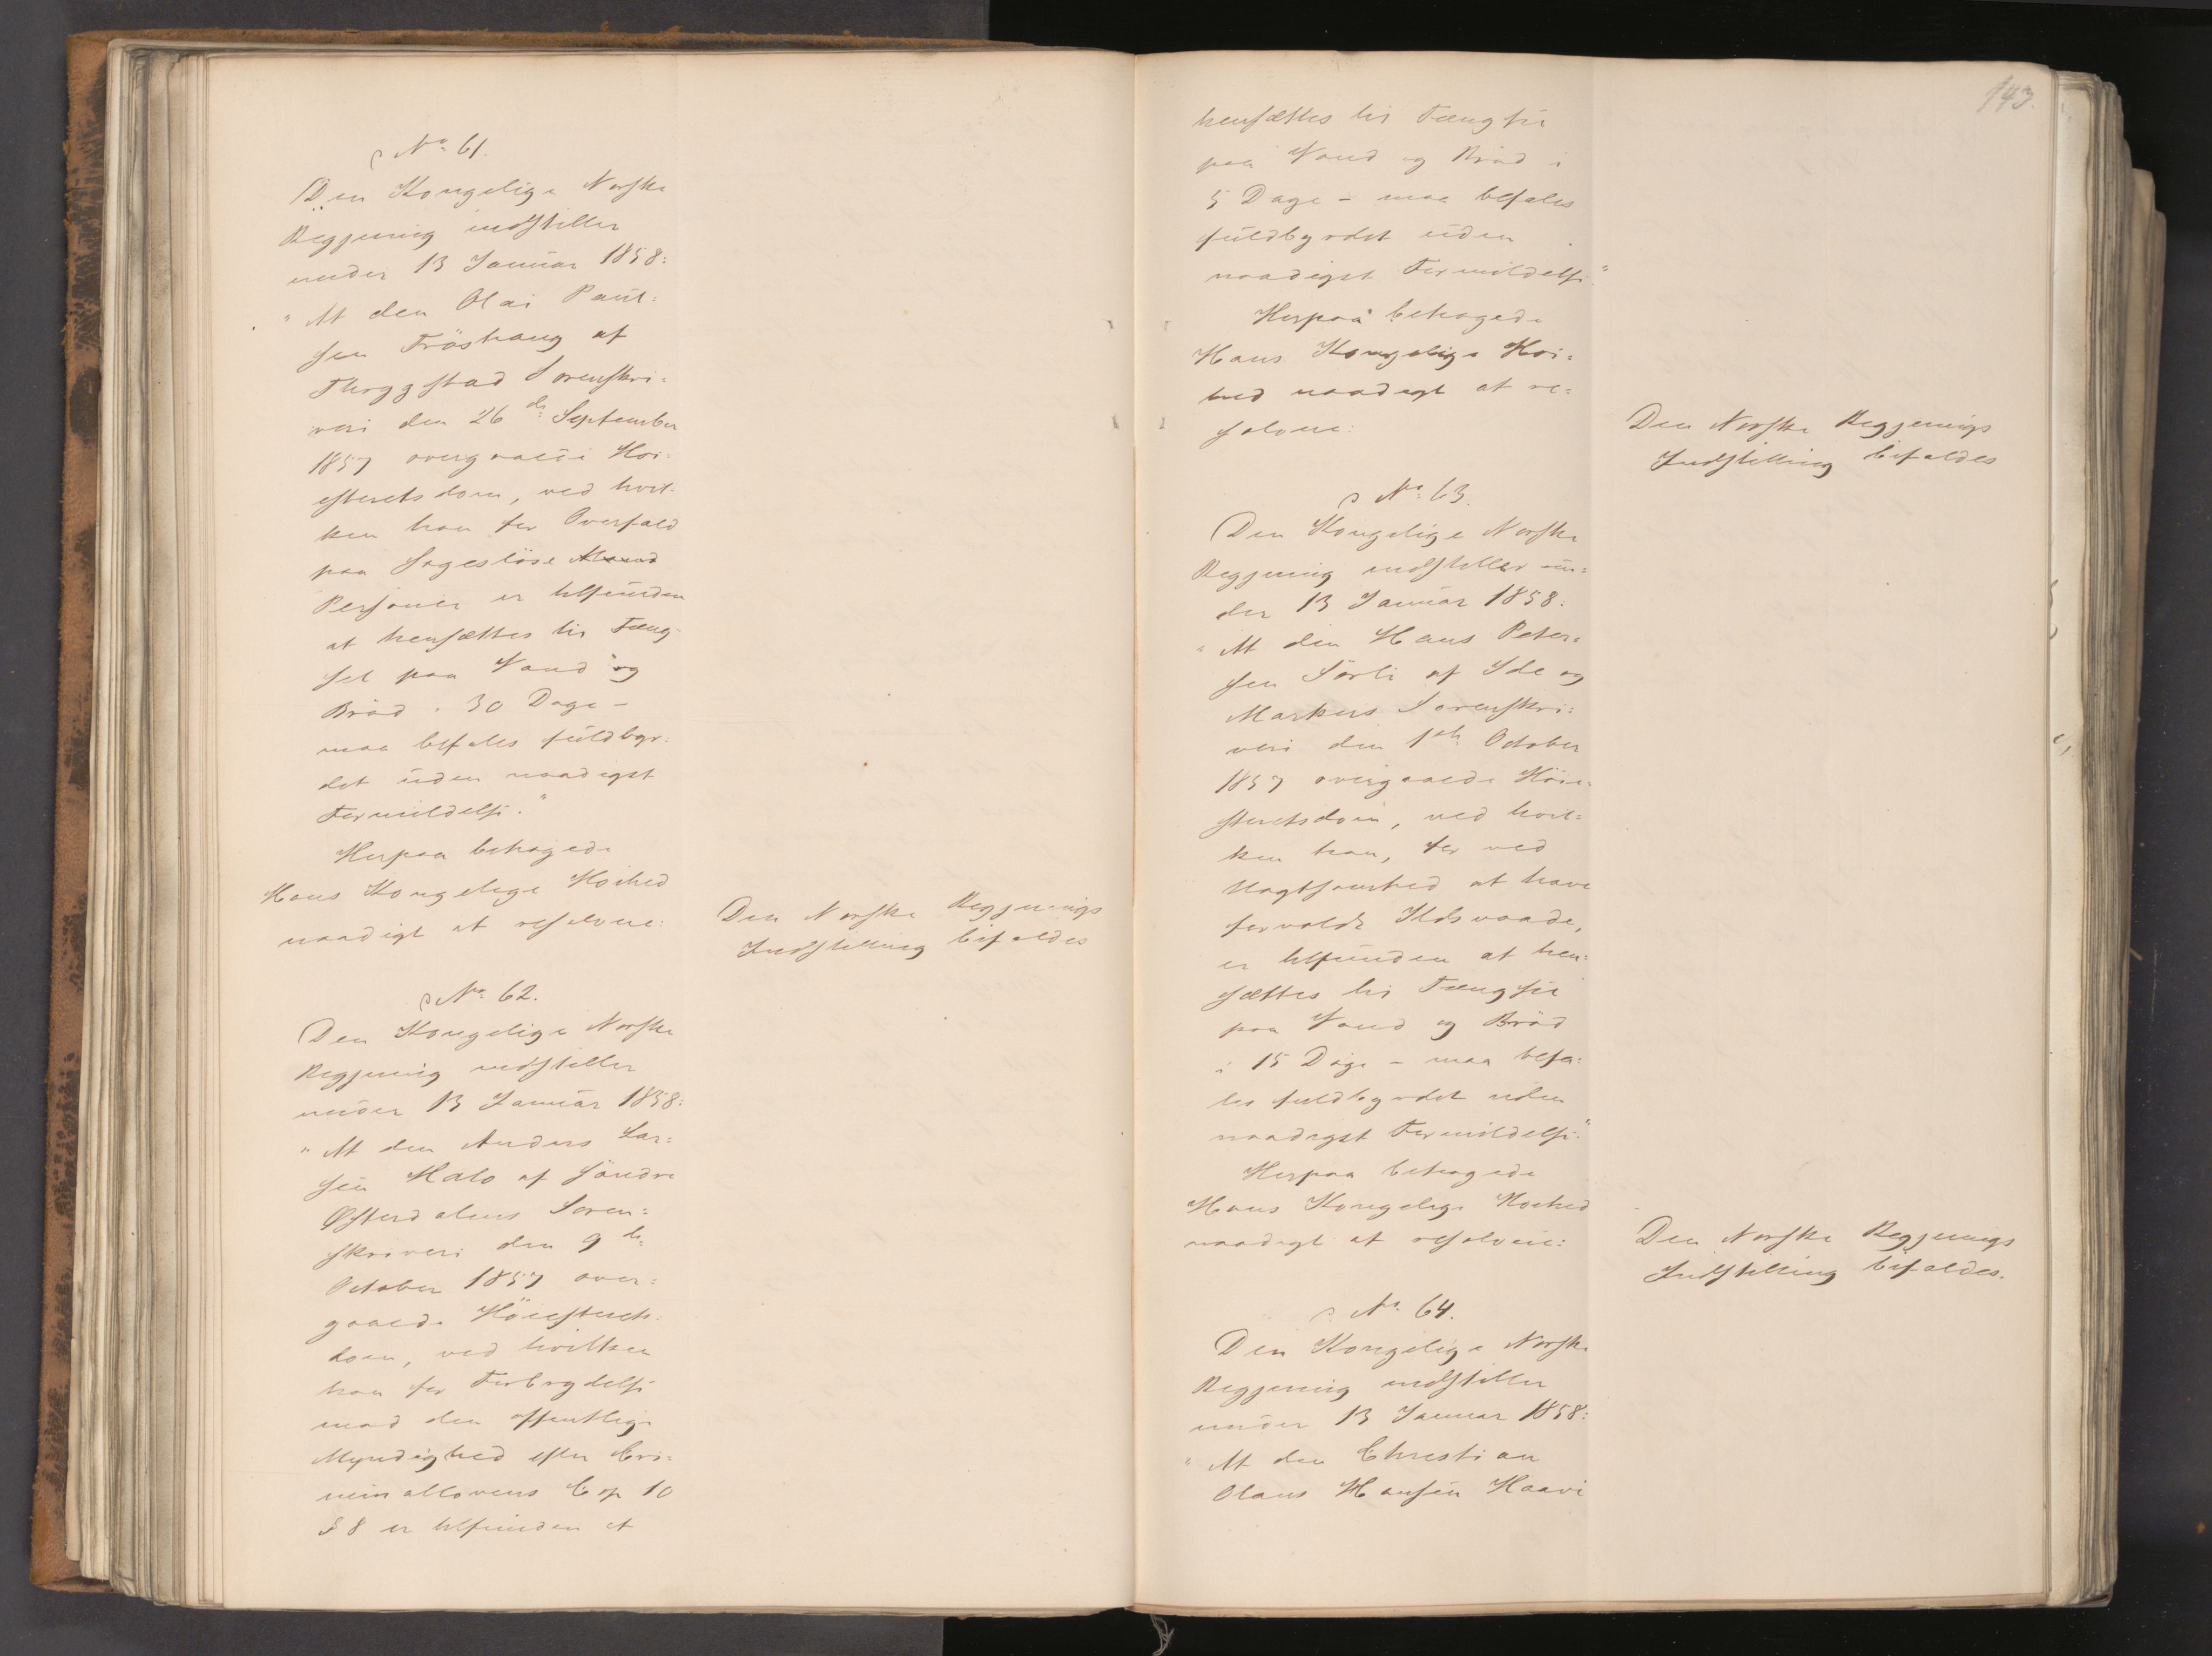 No 61.
Den Kongelige Norske
Regjering indstiller
under 13 Januar 1858:
"At den Olai Paul=
sen Fröshaug af
Thryggstad Sorenskri=
veri den 26de September
1857 overgaaede Høi=
esteretsdom, ved hvil=
ken han for Overfald
paa sagesløse Mænd
Personer er tilfunden
at hensættes til Fæng=
sel paa Vand og
Brød i 30 Dage –
maa befales fuldbyr=
det uden naadigst
Formildelse."
Herpaa behagede
Hans Kongelige Høihed
naadigst at resolvere:
Den Norske Regjerings
Indstilling bifaldes
No 62.
Den Kongelige Norske
Regjering indstiller
under 13 Januar 1858:
"At den Anders Lar=
sen Malo af söndre
Østerdalens Soren=
skriveri den 9de
October 1857 over=
gaaede Höiesterets=
dom, ved hvilken
han for Forbrydelse
mod den offentlige
Myndighed efter Cri=
minallovens Cap 10
§ 8 er tilfunden at
143.
hensættes til Fængsel
paa Vand og Bröd i
5 Dage – maa befales
fuldbyrdet uden
naadigst Formildelse."
Herpaa behagede
Hans Kongelige Høi=
hed naadigst at re=
solvere:
Den Norske Regjerings
Indstilling bifaldes
No 63.
Den Kongelige Norske
Regjering indstiller un=
der 13 Januar 1858:
"At den Hans Peter=
sen Sörli af Ide og
Markers Sorenskri=
veri den 1ste October
1857 overgaaede Höie=
steretsdom, ved hvil=
ken han, for ved
Uagtsomhed at have
forvoldt Ildsvaade,
er tilfunden at hen=
sættes til Fængsel
paa Vand og Bröd
i 15 Dage – maa befa=
les fuldbyrdet uden
naadigst Formildelse."
Herpaa behagede
Hans Kongelige Høihed
naadigst at resolvere:
Den Norske Regjerings
Indstilling bifaldes.
No 64.
Den Kongelige Norske
Regjering indstiller
under 13 Januar 1858:
"At den Christian
Olaus Hansen Haavi